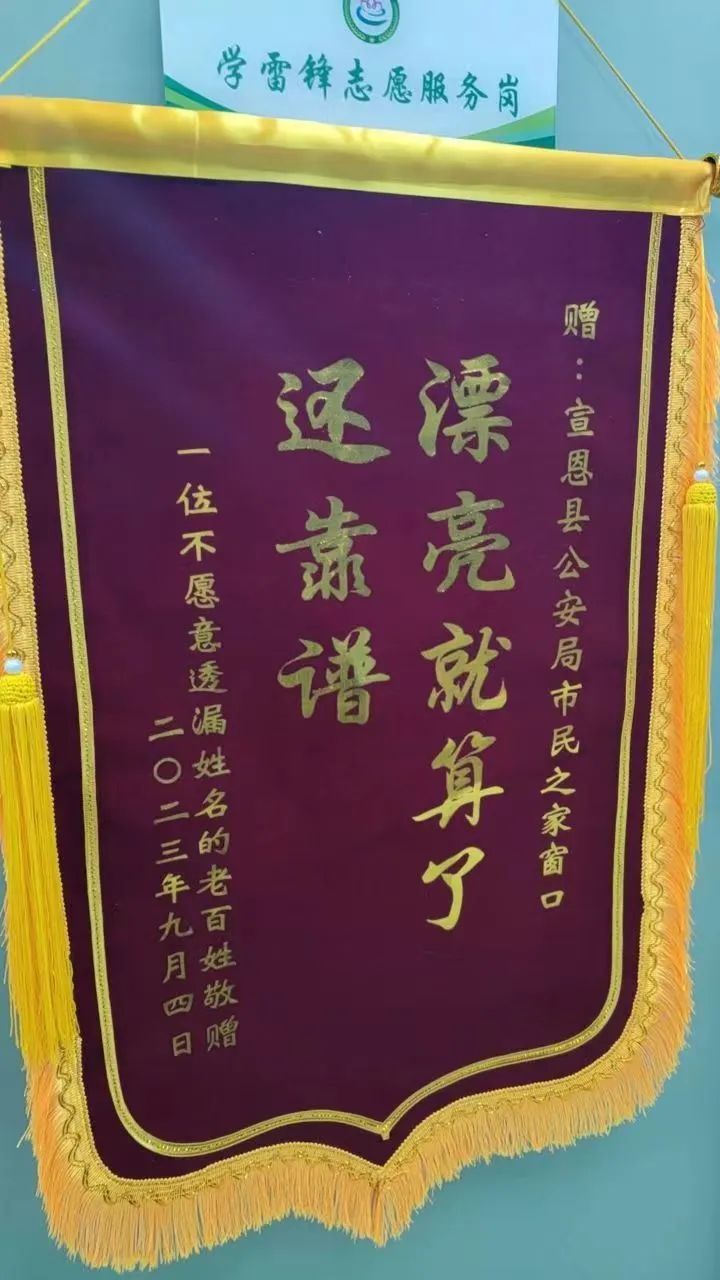 学雷锋志愿服务岗
赠：宣恩县公安局市民之家窗口
漂亮就算了
还靠谱
一位不愿意透漏姓名的老百姓敬赠
二〇二三年九月四日